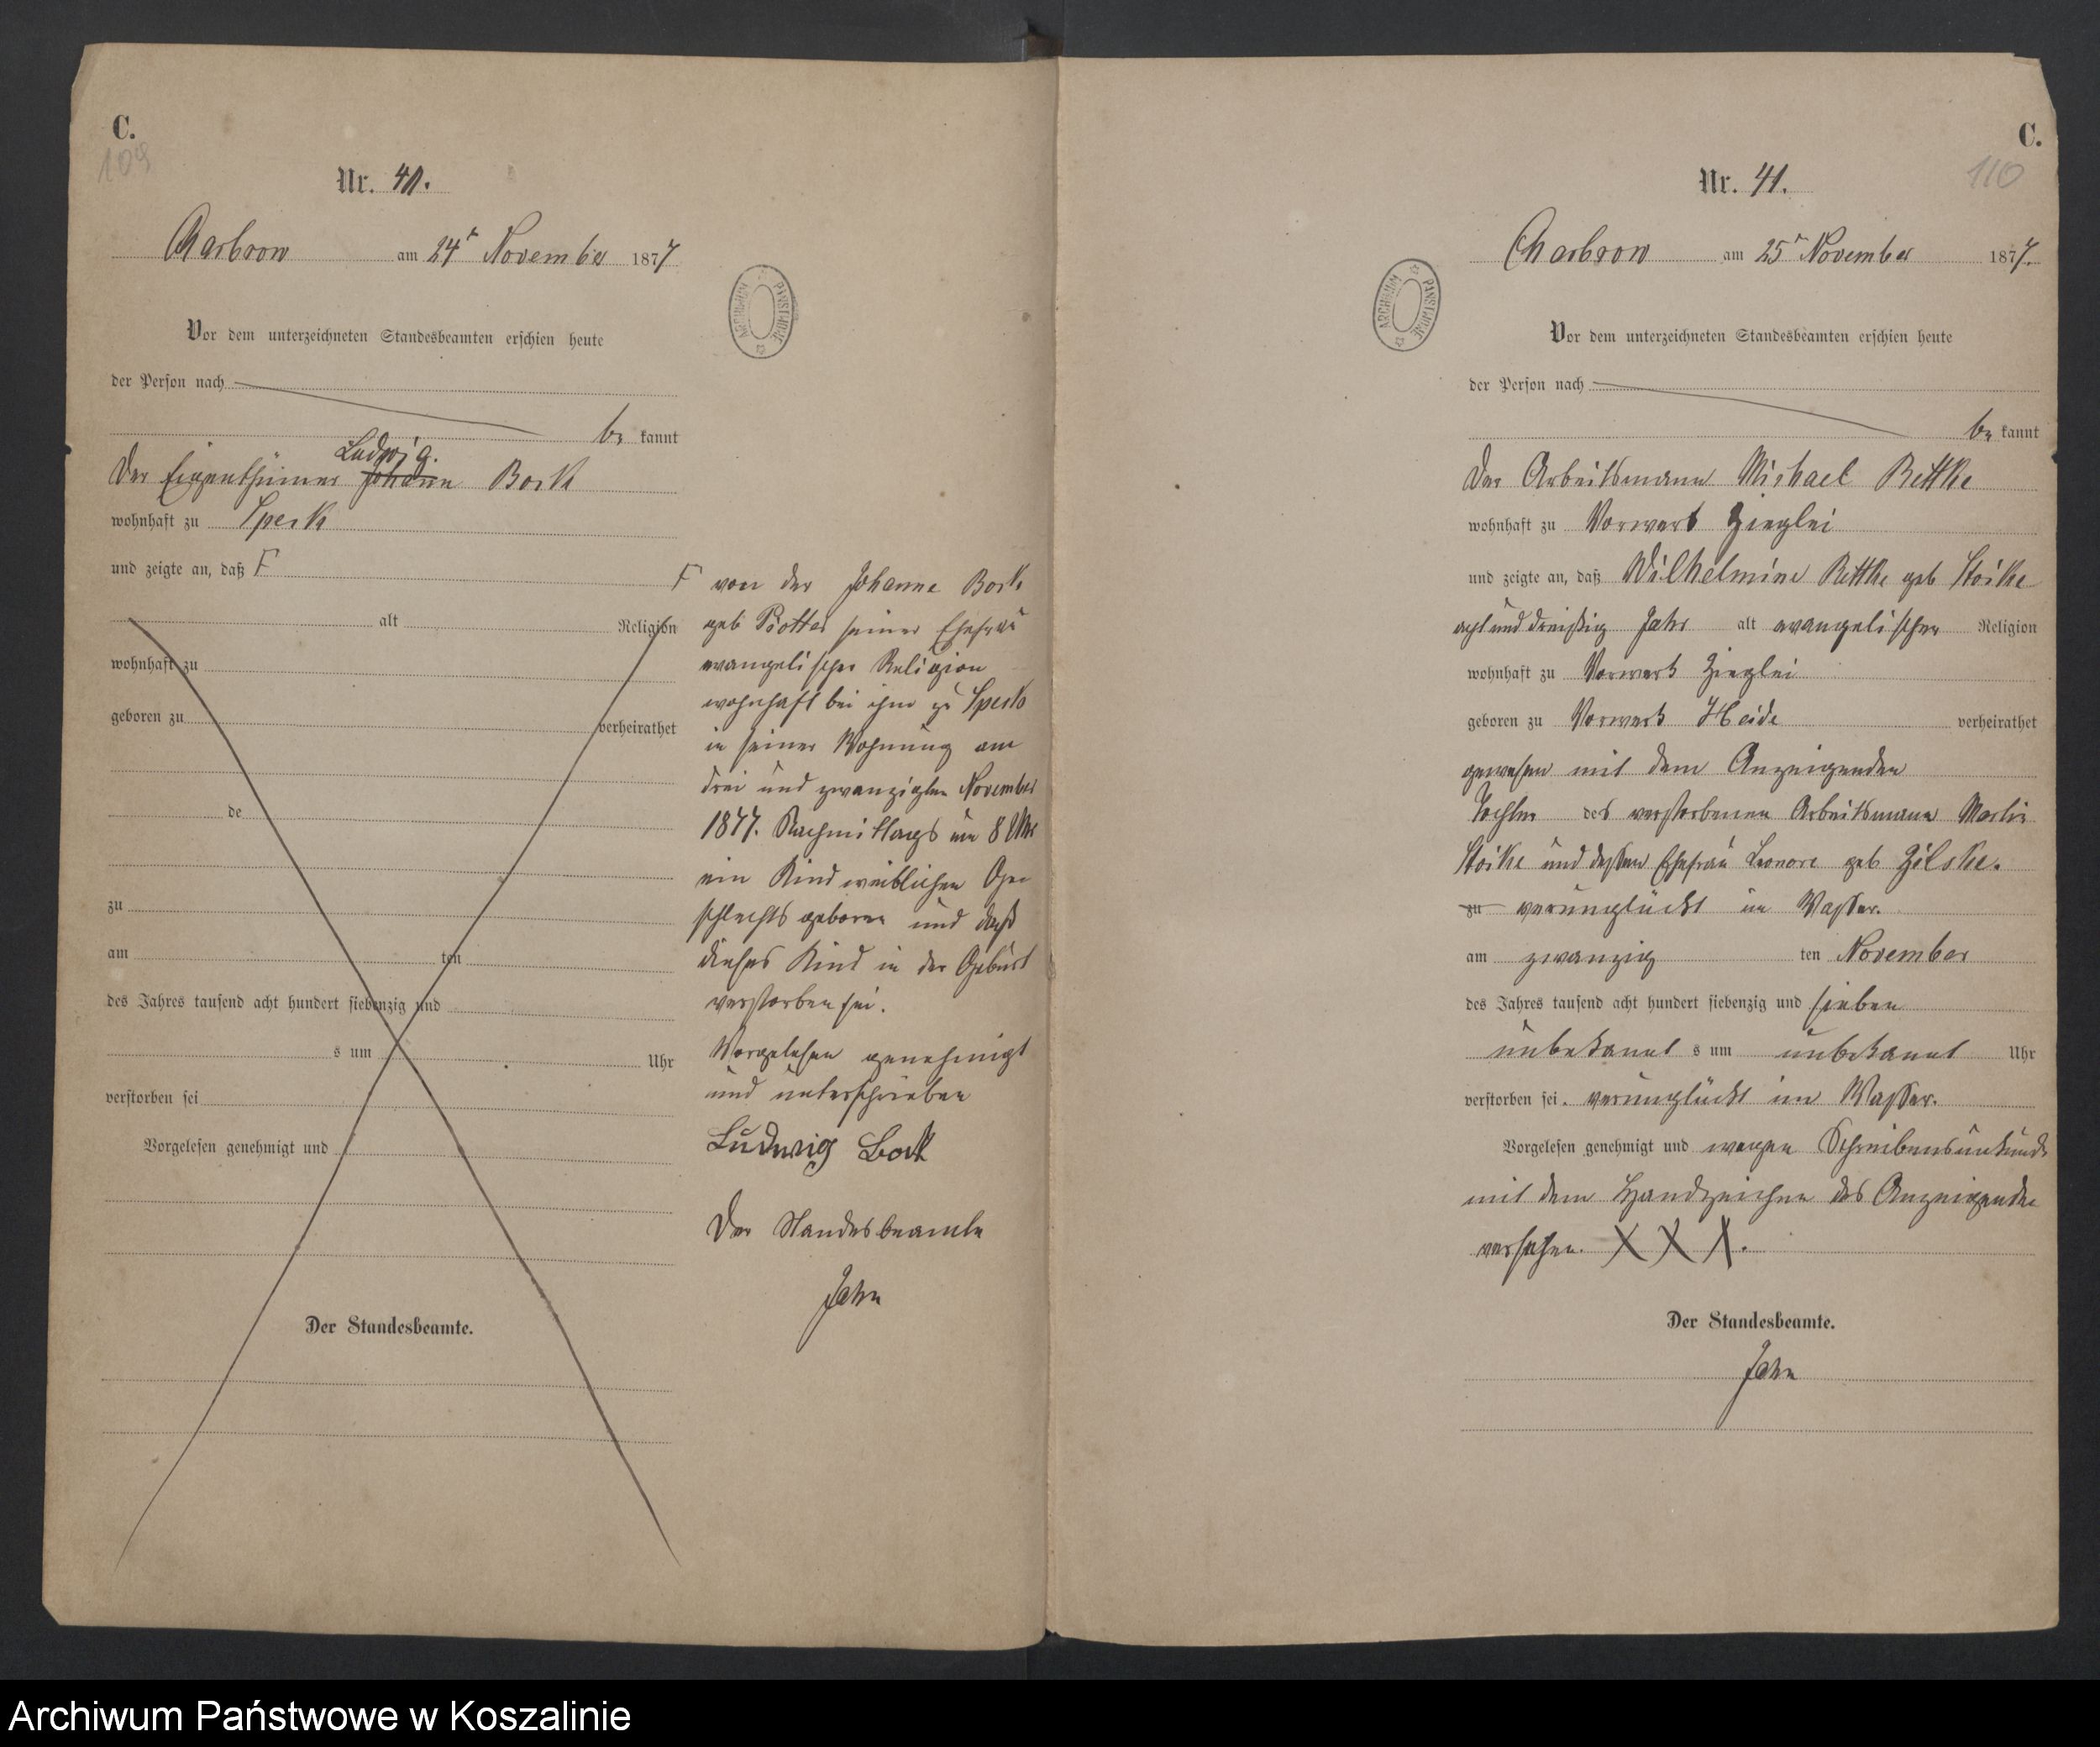 C.
109
Nr. 40.
Charbrow am 24t November 1877
Vor dem unterzeichneten Standesbeamten erschien heute
der Person nach
be kannt
Ludwig.
Der Eigenthümer Johann Bork
wohnhaft zu Speck
und zeigte an, daß F
alt Religion
wohnhaft zu
geboren zu
verheirathet
de
zu
am ten
des Jahres tausend acht hundert siebenzig und
s um Uhr
verstorben sei
Vorgelesen genehmigt und
Der Standesbeamte.
ARCHIWUM PAŃSTWOWE
F von der Johanne Bork
geb seiner Ehefrau
evangelischer Religion
wohnhaft bei ihm zu Speck
in seiner Wohnung am
drei und zwanzigten November
1877. Nachmittags um 8 Uhr
ein Kind weiblichen Ge
schlechts geboren und daß
dieses Kind in der Geburt
verstorben sei.
Vorgelesen genehmigt
und unterschrieben
Ludwig Bork
Der Standesbeamte
Jahn
C.
110
Nr. 41.
Charbrow am 25t November 1877.
ARCHIWUM PAŃSTWOWE
Vor dem unterzeichneten Standesbeamten erschien heute
der Person nach
be kannt
Der Arbeitsmann Michael Rettke
wohnhaft zu Vorwerk Zieglei
und zeigte an, daß Wilhelmine Rettke geb Stoike
acht und dreißig Jahr alt evangelischer Religion
wohnhaft zu Vorwerk Zieglei
geboren zu Vorwerk Heide verheirathet
gewesen mit dem Anzeigenden
Tochter des verstorbenen Arbeitsmann Martin
Stoike und dessen Ehefrau Leonore geb Zielske.
zu verunglückt im Wasser.
am zwanzig ten November
des Jahres tausend acht hundert siebenzig und sieben
unbekannt s um unbekannt Uhr
verstorben sei. verunglückt im Wasser.
Vorgelesen genehmigt und wegen Schreibensunkunde
mit dem Handzeichen des Anzeigenden
versehen. X X X.
Der Standesbeamte.
Jahn
Archiwum Państwowe w Koszalinie